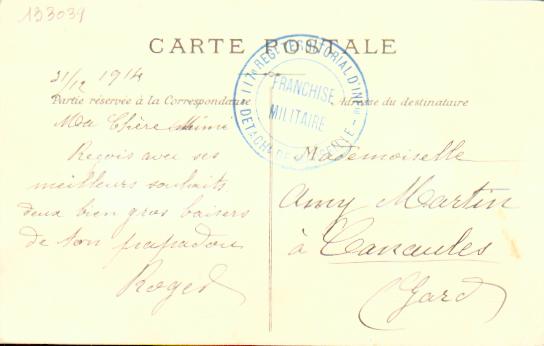 133039
CARTE POSTALE
31/12 1914
Partie réservée à la Correspondance
Adresse du destinataire
117e REGt TERRITORIAL D'INFie
FRANCHISE
MILITAIRE
DETACHt DE
Ma Chère Mimi
Reçois avec ses
meilleurs souhaits
deux bien gros baisers
de ton papadou
Roger
Mademoiselle
Amy Martin
à Canaules
(Gard)